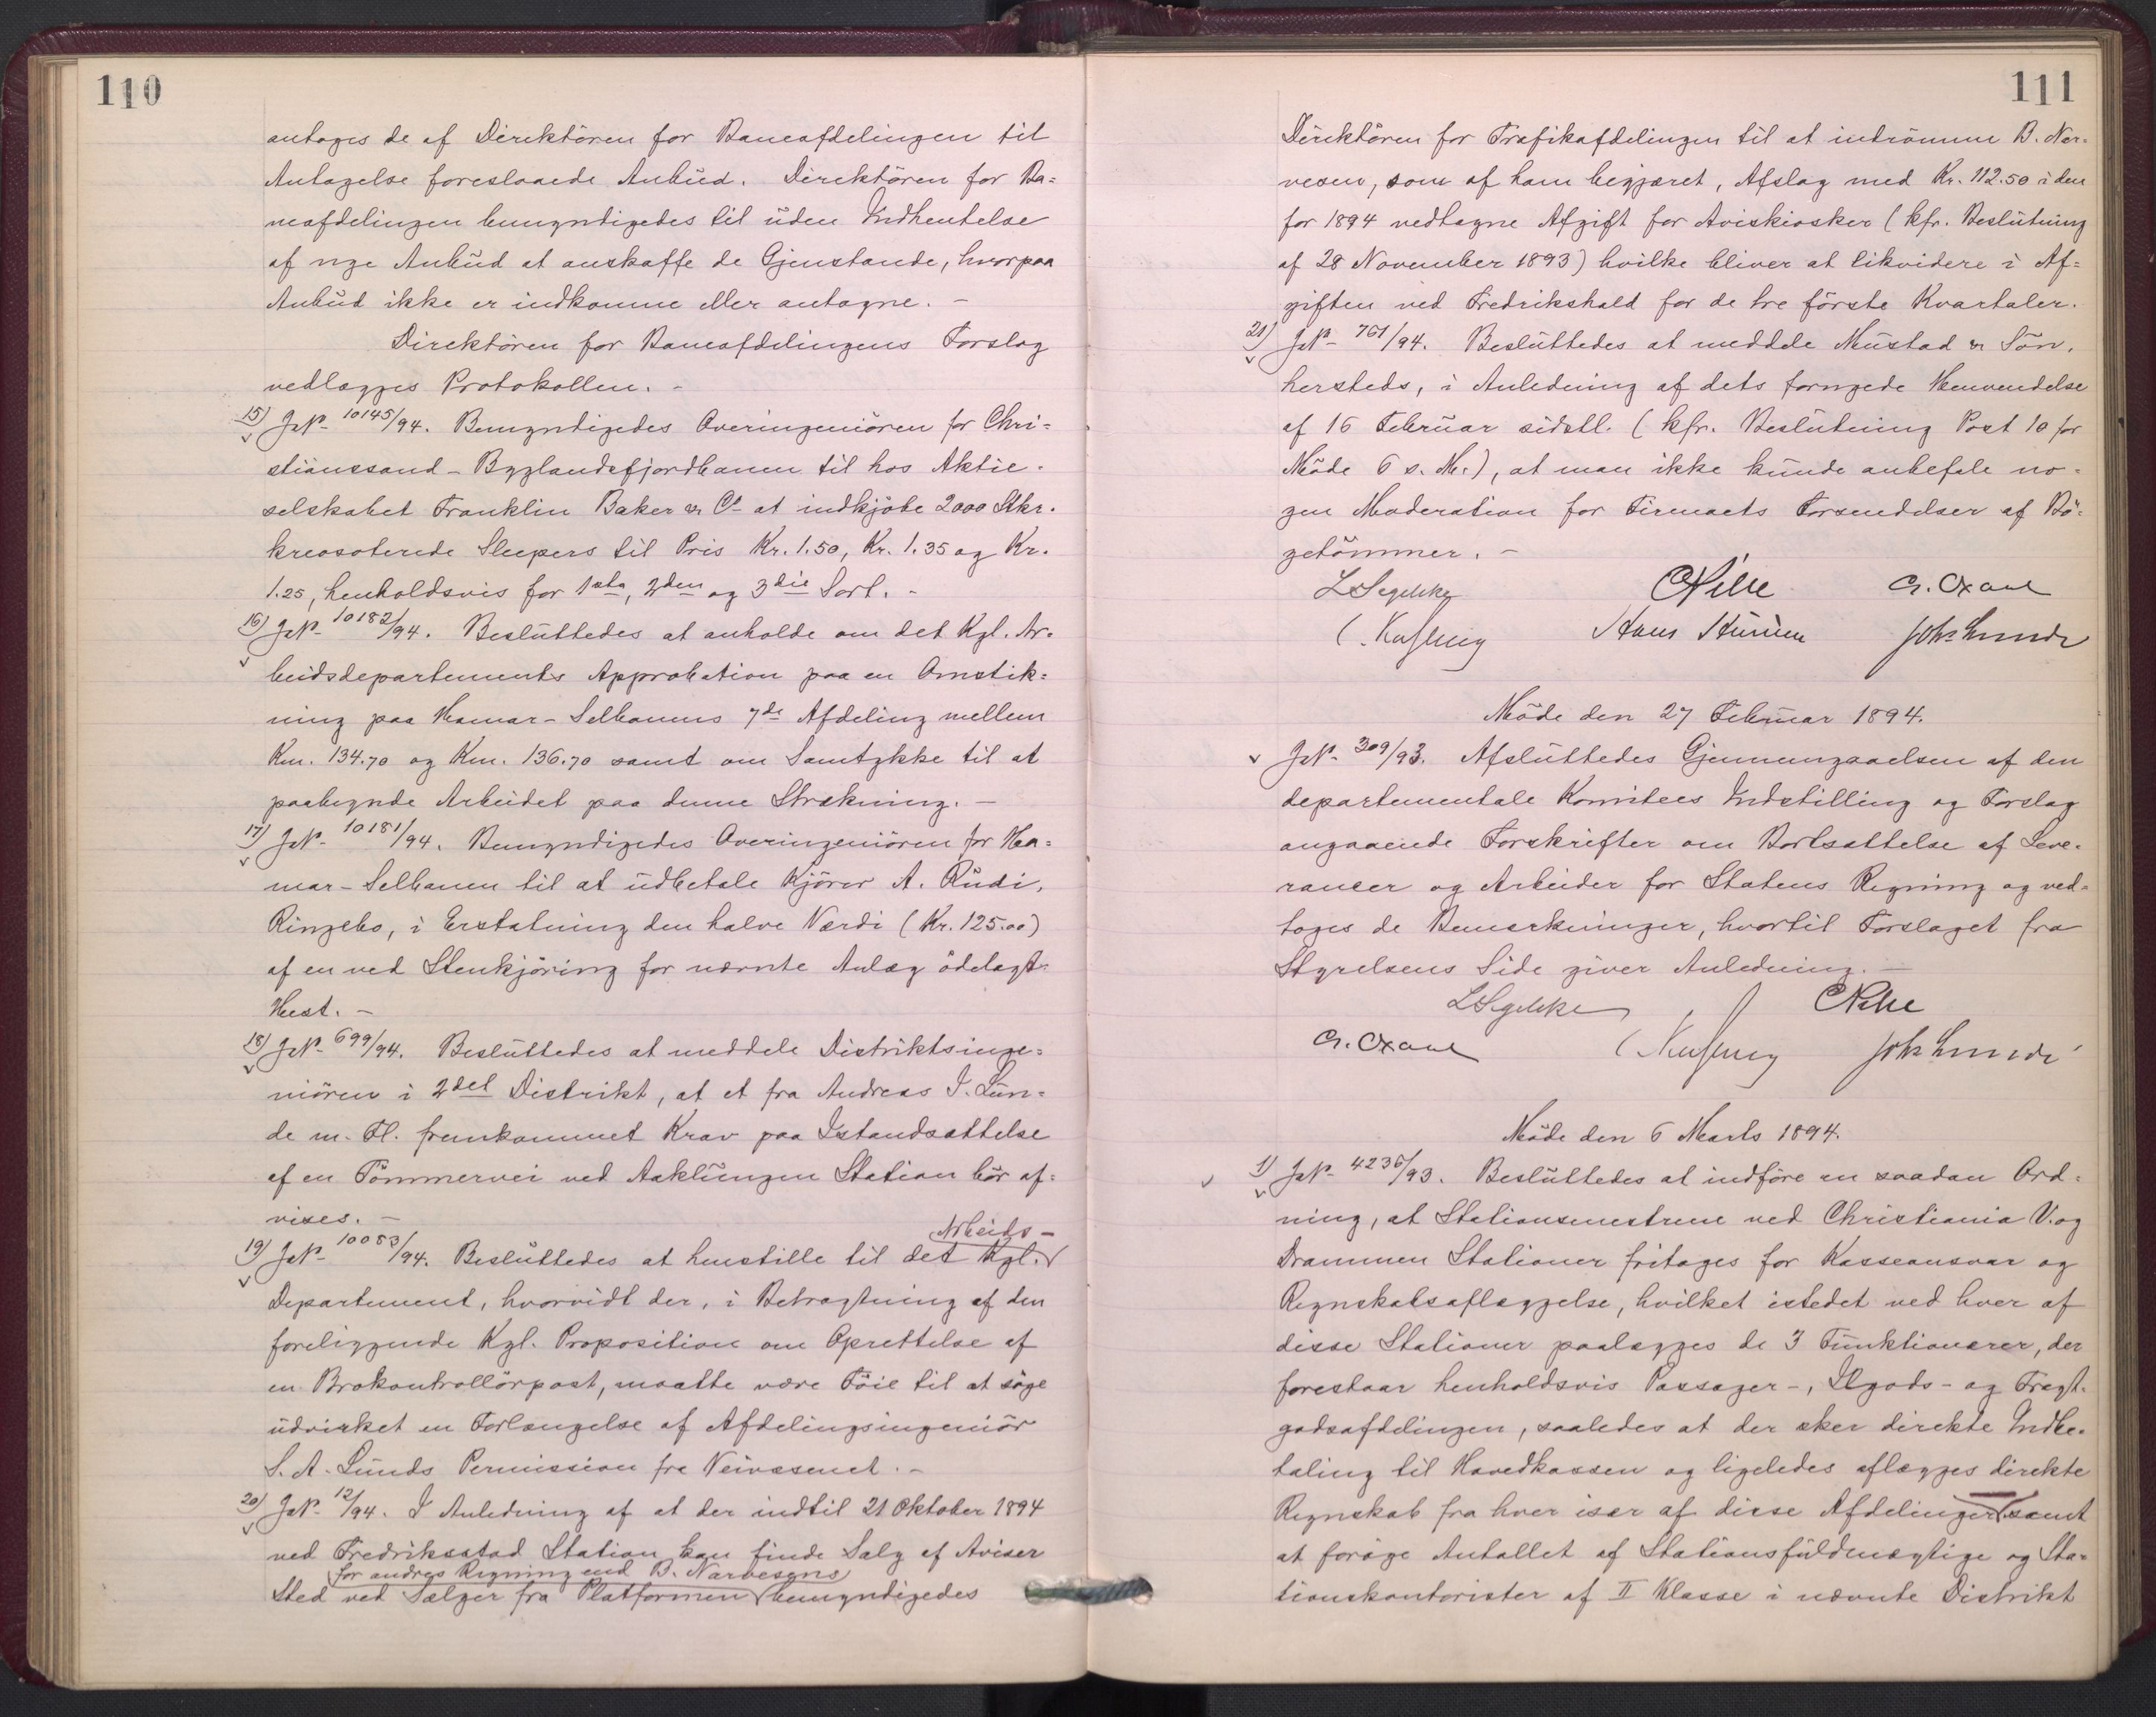 110
antoges de af Direktören for Baneafdelingen til
Antagelse foreslaaede Anbud. Direktören for Ba=
neafdelingen bemyndigedes til uden Indhentelse
af nye Anbud at anskaffe de Gjenstande, hvorpaa
Anbud ikke er indkomne eller antagne. –
Direktören for Baneafdelingens Forslag
vedlægges Protokollen. –
15) JN. 10145/94. Bemyndigedes Overingeniören for Chri=
stianssand – Byglandsfjordbanen til hos Aktie-
selskabet Franklin Baker & Co at indkjöbe 2000 Stkr.
kreosoterede Sleepers til Pris Kr. 1.50, Kr. 1.35 og Kr.
1.25, henholdsvis for 1ste, 2den og 3die Sort. –
16) JN. 10182/94. Besluttedes at anholde om det Kgl. Ar-
beidsdepartements Approbation paa en Omstik=
ning paa Hamar – Selbanens 7de Afdeling mellem
Km. 134.70 og Km. 136.70 samt om Samtykke til at
paabegynde Arbeidet paa denne Strækning. –
17) JN. 10181/94. Bemyndigedes Overingeniören for Ha=
mar – Selbanen til at udbetale Kjörer A. Rudi,
Ringebo, i Erstatning den halve Værdi (Kr. 125.00)
af en ved Stenkjöring for nævnte Anlæg ödelagt
Hest. –
18) JN. 699/94. Besluttedes at meddele Distriktsinge=
niören i 2det Distrikt, at et fra Andreas J. Lun=
de m. Fl. fremkommet Krav paa Istandsættelse
af en Tömmervei ved Aaklungen Station bör af=
vises. –
Arbeids –
19) JN. 10083/94. Besluttedes at henstille til det Kgl.
Departement, hvorvidt der, i Betragtning af den
foreliggende Kgl. Proposition om Oprettelse af
en Brokontrollörpost, maatte være Föie til at söge
udvirket en Forlængelse af Afdelingsingeniör
S. A. Lunds Permission fra Veivæsenet. –
20) JN. 12/94. I Anledning af at der indtil 21 Oktober 1894
ved Fredriksstad Station kan finde Salg af Aviser
for andres Regning end B. Narvesens
Sted ved Sælger fra Platformen bemyndigedes
111
Direktören for Trafikafdelingen til at indrömme B. Nar-
vesen, som af ham begjæret, Afslag med Kr. 112.50 i den
for 1894 vedtagne Afgift for Aviskiosker (kfr. Beslutning
af 28 November 1893) hvilke bliver at likvidere i Af=
giften ved Fredrikshald for de tre förste Kvartaler.
21) JN. 761/94. Besluttedes at meddele Mustad & Sön,
hersteds, i Anledning af dets fornyede Henvendelse
af 16 Februar sidstl. (kfr. Beslutning Post 10 for
Möde 6 s. M.), at man ikke kunde anbefale no-
gen Moderation for Firmaets Forsendelser af Bö-
getömmer. –
L Segelcke CPihl G. Oxaal
Hans Joh. Lunde
Möde den 27 Februar 1894.
JN. 309/93. Afsluttedes Gjennemgaaelsen af den
departementale Komitees Indstilling og Forslag
angaaende Forskrifter om Bortsættelse af Leve-
rancer og Arbeider for Statens Regning og ved-
toges de Bemærkninger, hvortil Forslaget fra
Styrelsens Side giver Anledning. –
L Segelcke CPihl
G. Oxaal Joh. Lunde
Möde den 6 Marts 1894.
1) JN. 4235/93. Besluttedes at indföre en saadan Ord-
ning, at Stationsmestrene ved Christiania V. og
Drammen Stationer fritages for Kasseansvar og
Regnskabsaflæggelse, hvilket istedet ved hver af
disse Stationer paalægges de 3 Funktionærer, der
forestaar henholdsvis Passager-, Ilgods- og Fragt-
godsafdelingen, saaledes at der sker direkte Indbe-
taling til Hovedkassen og ligeledes aflægges direkte
Regnskab fra hver især af disse Afdelinger samt
at foröge Antallet af Stationsfuldmægtige og Sta-
tionskontorister af II Klasse i nævnte Distrikt